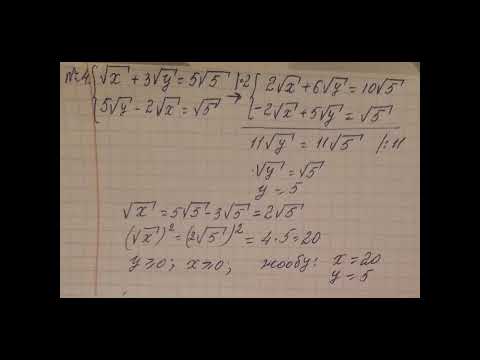 №4. { √x + 3√y = 5√5 |·2 { 2√x + 6√y = 10√5
{ 5√y - 2√x = √5 → { -2√x + 5√y = √5
11√y = 11√5 /:11
√y = √5
y = 5
√x = 5√5 - 3√5 = 2√5
(√x)² = (2√5)² = 4·5 = 20
y ≥ 0; x ≥ 0; жообу: x = 20
y = 5